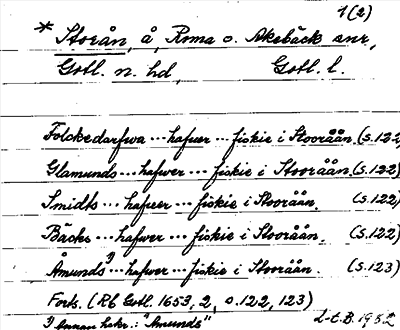 1(2)
* Storån, å, Roma o. Akebäck snr,
Gotl. n. hd, Gotl. l.
Folckedarfwa ... hafwer ... fiskie i Stooråån. (s.122)
Glamunds ... hafwer ... fiskie i Stooråån. (s.122)
Smidts ... hafwer ... fiskie i Stooråån. (s.122)
Bäcks ... hafwer ... fiskie i Stooråån. (s.122)
Åmunds 1) ... hafwer ... fiskie i Stooråån. (s.123)
Forts. (Rb Gotl. 1653, 2, s. 122, 123)
1) Annan hskr.: "Amunds" L-E.B. 1952